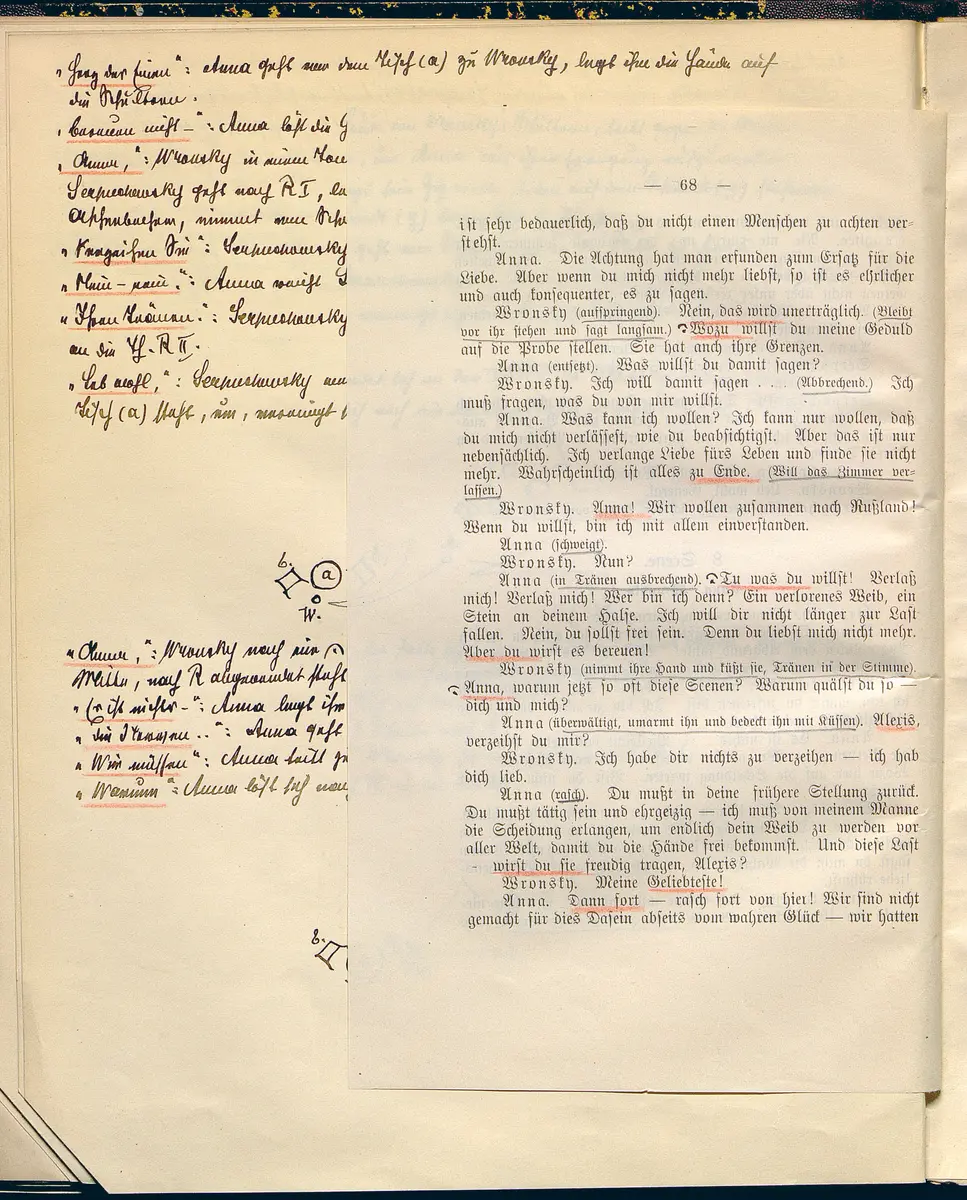 „Herz der Einen“: Anna geht von dem Tisch (a) zu Wronsky, legt ihm die Hände auf
die Schultern.
nicht –“: Anna löst die
„Anna,“: Wronsky in einem
Serpuchowsky geht nach R I,
nimmt
„Verzeihen Sie“: Serpuchowsky
„Nein – nein“: Anna weicht
„Ihren Tränen“: Serpuchowsky
an die T. R II.
„Leb wohl,“: Serpuchowsky
Tisch (a) steht, um,
b.
a
W.
„Anna,“: Wronsky noch
Mitte, nach R abgewendet steht
„Er ist nichts –“: Anna legt ihm
„Die Nerven ..“: Anna geht
„Wir müssen“: Anna
„Warum“: Anna löst sich
b.
— 68 —
ist sehr bedauerlich, daß du nicht einen Menschen zu achten ver-
stehst.
Anna. Die Achtung hat man erfunden zum Ersatz für die
Liebe. Aber wenn du mich nicht mehr liebst, so ist es ehrlicher
und auch konsequenter, es zu sagen.
Wronsky (aufspringend). Nein, das wird unerträglich. (Bleibt
vor ihr stehen und sagt langsam.) Wozu willst du meine Geduld
auf die Probe stellen. Sie hat auch ihre Grenzen.
Anna (entsetzt). Was willst du damit sagen?
Wronsky. Ich will damit sagen . . . (Abbrechend.) Ich
muß fragen, was du von mir willst.
Anna. Was kann ich wollen? Ich kann nur wollen, daß
du mich nicht verlässest, wie du beabsichtigst. Aber das ist nur
nebensächlich. Ich verlange Liebe fürs Leben und finde sie nicht
mehr. Wahrscheinlich ist alles zu Ende. (Will das Zimmer ver-
lassen.)
Wronsky. Anna! Wir wollen zusammen nach Rußland!
Wenn du willst, bin ich mit allem einverstanden.
Anna (schweigt).
Wronsky. Nun?
Anna (in Tränen ausbrechend). Tu was du willst! Verlaß
mich! Verlaß mich! Wer bin ich denn? Ein verlorenes Weib, ein
Stein an deinem Halse. Ich will dir nicht länger zur Last
fallen. Nein, du sollst frei sein. Denn du liebst mich nicht mehr.
Aber du wirst es bereuen!
Wronsky (nimmt ihre Hand und küßt sie, Tränen in der Stimme).
Anna, warum jetzt so oft diese Scenen? Warum quälst du so —
dich und mich?
Anna (überwältigt, umarmt ihn und bedeckt ihn mit Küssen). Alexis,
verzeihst du mir?
Wronsky. Ich habe dir nichts zu verzeihen — ich hab
dich lieb.
Anna (rasch). Du mußt in deine frühere Stellung zurück.
Du mußt tätig sein und ehrgeizig — ich muß von meinem Manne
die Scheidung erlangen, um endlich dein Weib zu werden vor
aller Welt, damit du die Hände frei bekommst. Und diese Last
wirst du sie freudig tragen, Alexis?
Wronsky. Meine Geliebteste!
Anna. Dann fort — rasch fort von hier! Wir sind nicht
gemacht für dies Dasein abseits vom wahren Glück — wir hatten